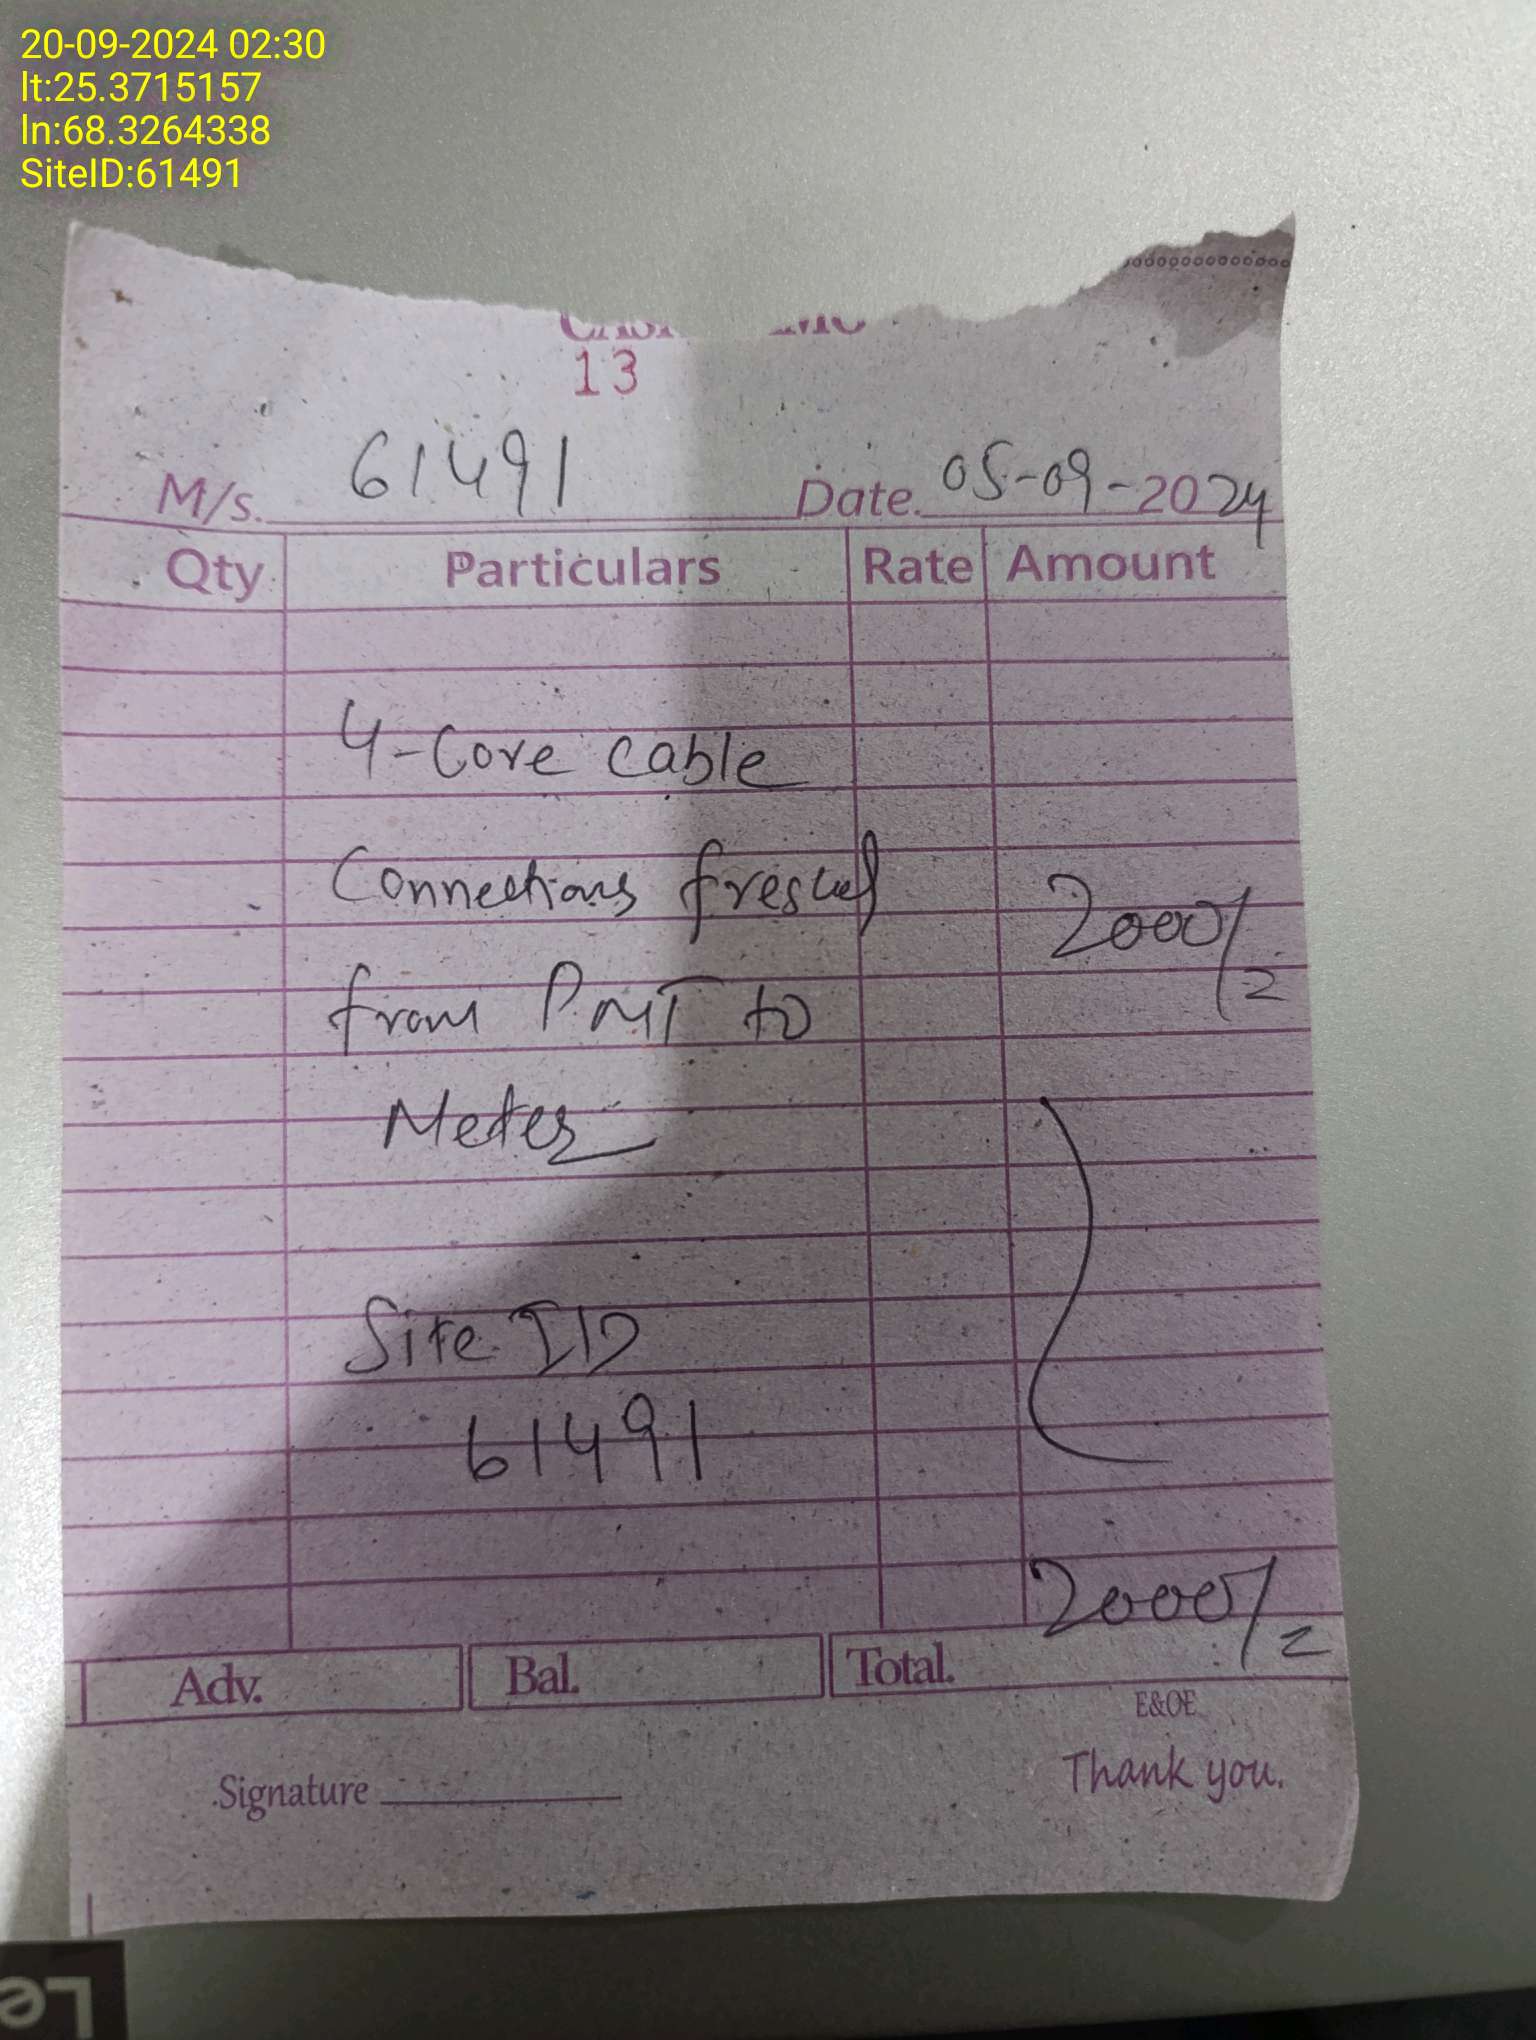 20-09-2024 02:30
lt:25.3715157
ln:68.3264338
SiteID:61491
13
M/s. 61491 Date. 05-09-2024
Qty Particulars Rate Amount
4-Core cable
Connections 2000/=
from PMT to
Meter
Site ID
61491
2000/=
Adv. Bal. Total.
E&OE
Signature Thank you.
Le